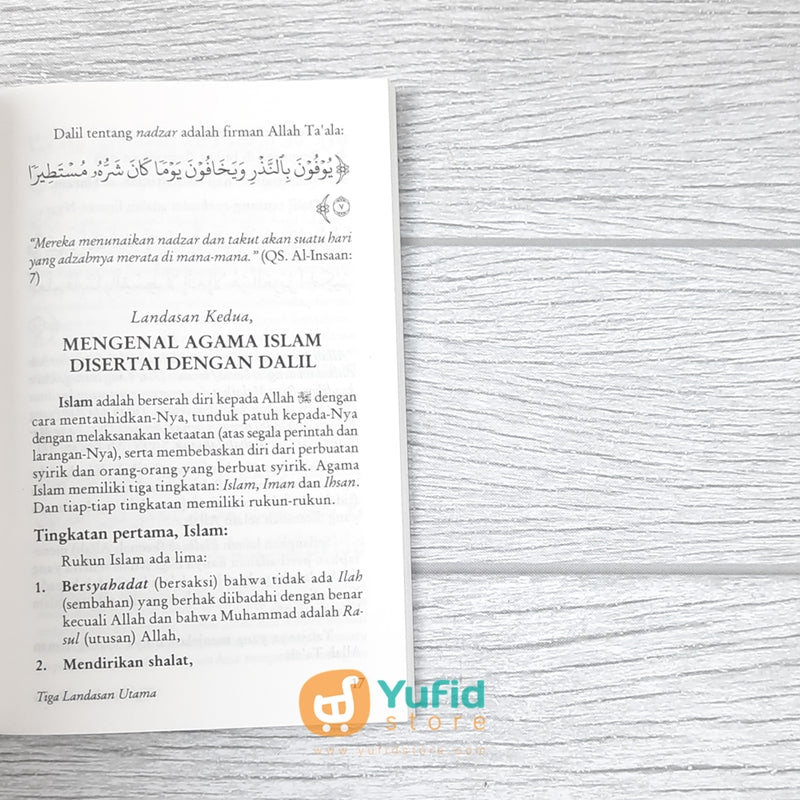 Dalil tentang nadzar adalah firman Allah Ta'ala:
﴿ يُوفُونَ بِٱلنَّذْرِ وَيَخَافُونَ يَوْمًا كَانَ شَرُّهُۥ مُسْتَطِيرًا
٧ ﴾
“Mereka menunaikan nadzar dan takut akan suatu hari
yang adzabnya merata di mana-mana.” (QS. Al-Insaan:
7)
Landasan Kedua,
MENGENAL AGAMA ISLAM
DISERTAI DENGAN DALIL
Islam adalah berserah diri kepada Allah ﷻ dengan
cara mentauhidkan-Nya, tunduk patuh kepada-Nya
dengan melaksanakan ketaatan (atas segala perintah dan
larangan-Nya), serta membebaskan diri dari perbuatan
syirik dan orang-orang yang berbuat syirik. Agama
Islam memiliki tiga tingkatan: Islam, Iman dan Ihsan.
Dan tiap-tiap tingkatan memiliki rukun-rukun.
Tingkatan pertama, Islam:
Rukun Islam ada lima:
1. Bersyahadat (bersaksi) bahwa tidak ada Ilah
(sembahan) yang berhak diibadahi dengan benar
kecuali Allah dan bahwa Muhammad adalah Ra-
sul (utusan) Allah,
2. Mendirikan shalat,
Tiga Landasan Utama
17
Yufid
store
www.yufidstore.com